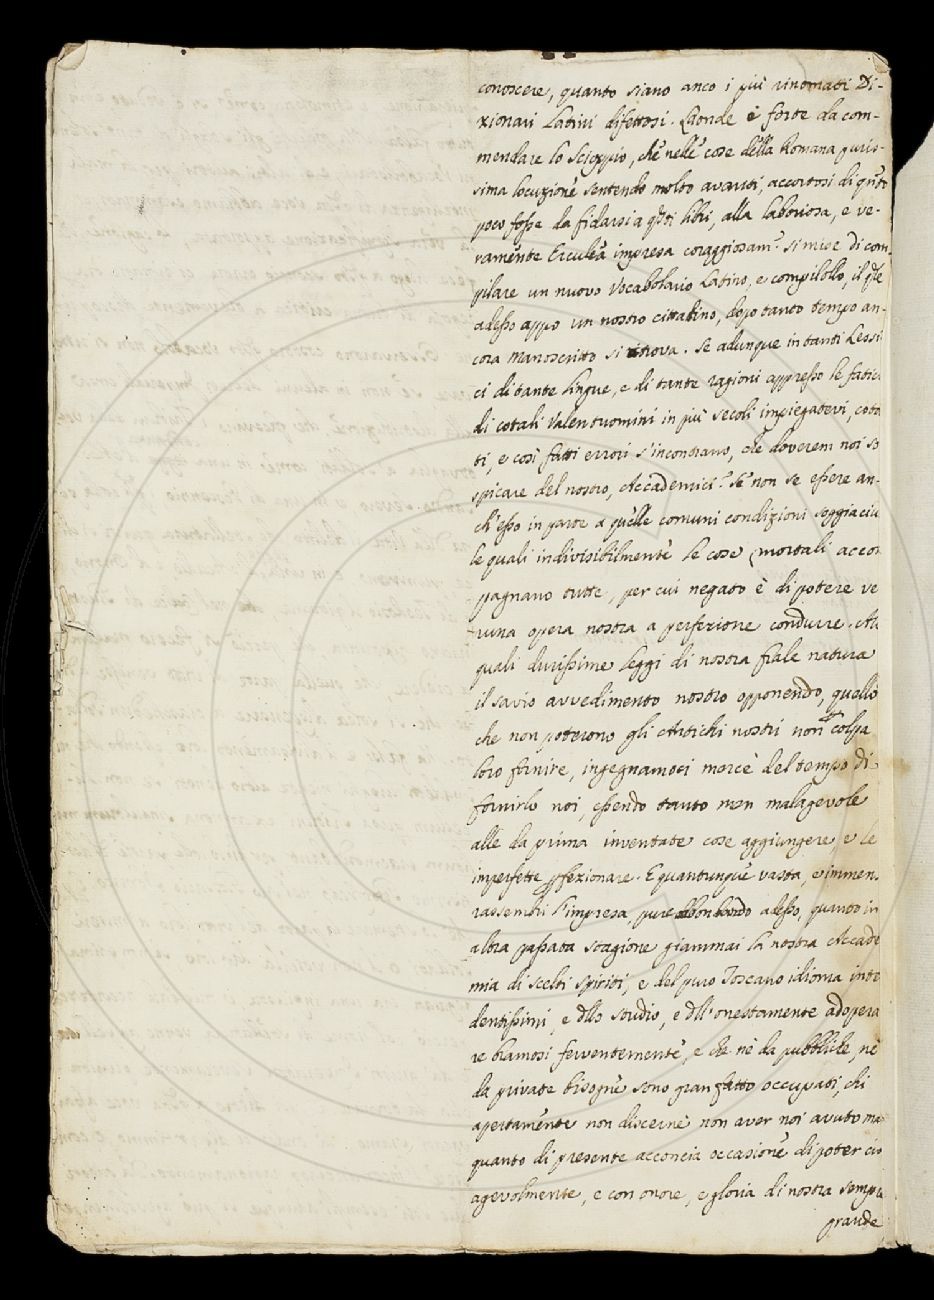 conoscere, quanto siano anco i più rinomati Di-
zionari Latini difettosi. Laonde è forte da com-
mendare lo Scioppio, che nelle cose della Romana puris-
sima locuzione sentendo molto avanti, accortosi di qto
poco fosse da fidarsi a qsti libri, alla laboriosa, e ve-
ramente Erculea impresa coraggiosam.e si mise di com
pilare un nuovo Vocabolario Latino, e compilollo, il qle
adesso appo un nostro cittadino, dopo tanto tempo an-
cora Manoscritto si ritrova. Se adunque in tanti Lessi
ci di tante lingue, e di tante ragioni appresso le fatic
di cotali Valentuomini in più secoli impiegatevi, cota
ti, e così fatti errori s'incontrano, che doverem noi so
spicare del nostro, Accademici? Se non se essere an-
ch'esso in parte a quelle comuni condizioni soggiaciu
le quali indivisibilmente le cose mortali accom
pagnano tutte, per cui negato è di potere ve
runa opera nostra a perfezione condurre. Al
quali durissime leggi di nostra frale natura
il savio avvedimento nostro opponendo, quello
che non poterono gli Antichi nostri non colpa
loro fornire, ingegnamoci mercè del tempo di
fornirlo noi, essendo tanto men malagevole
alle da prima inventate cose aggiungere e le
imperfette pfezionare. E quantunque vasta, e immen
rassembri l'impresa, pure abbondando adesso, quanto in
altra passata stagione giammai la nostra Accade
mia di scelti spiriti, e del puro Toscano idioma inte
dentissimi, e dllo studio, e dll'onestamente adopera
re bramosi ferventemente, e che nè da pubbliche, nè
da private bisogne sono gran fatto occupati, chi
apertamente non discerne non aver noi avuto ma
quanto di presente acconcia occasione di poter ciò
agevolmente, e con onore, e gloria di nostra sempre
grande